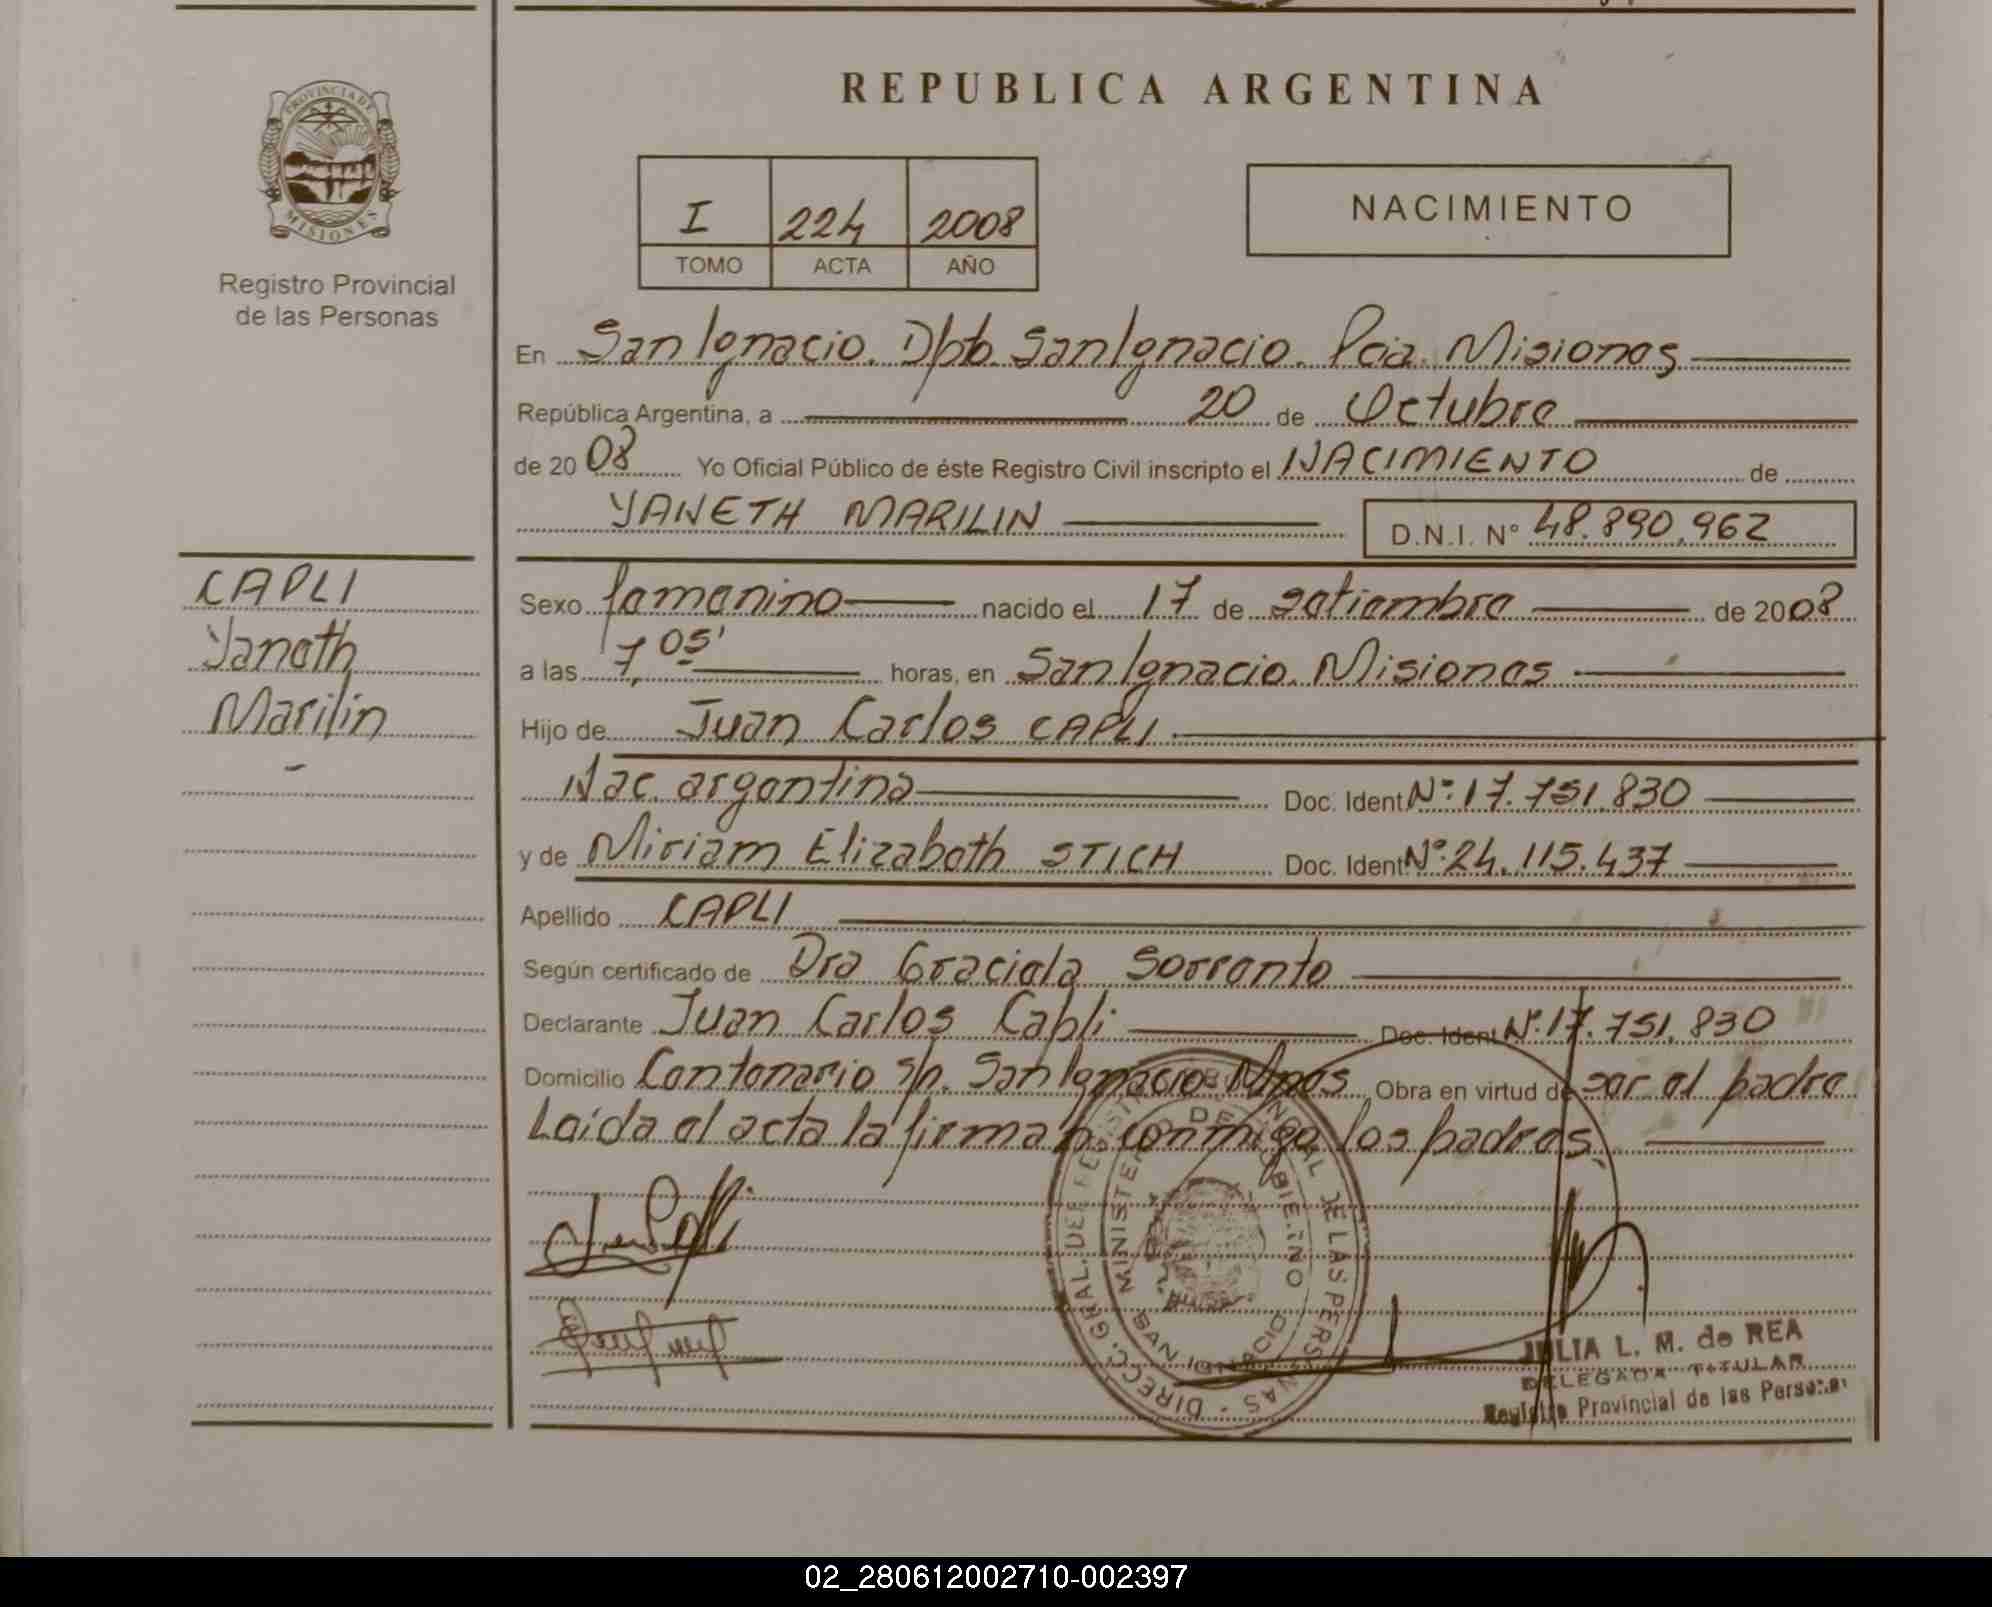 REPUBLICA ARGENTINA
PROVINCIA DE
MISIONES
Registro Provincial
de las Personas
I 224 2008
TOMO ACTA AÑO
NACIMIENTO
En San Ignacio. Dpto. San Ignacio. Pcia. Misiones
República Argentina, a 20 de Octubre
de 20 08 Yo Oficial Público de éste Registro Civil inscripto el NACIMIENTO de
YANETH MARILIN D.N.I. Nº 48.890.962
CAPLI
Yaneth
Marilin
Sexo femenino nacido el 17 de setiembre de 2008
a las 7,05' horas, en San Ignacio. Misiones
Hijo de Juan Carlos CAPLI
Nac. argentina Doc. Ident Nº: 17.751.830
y de Miriam Elizabeth STICH Doc. Ident Nº: 24.115.437
Apellido CAPLI
Según certificado de Dra Graciela Sorrento
Declarante Juan Carlos Capli Doc. Ident Nº. 17.751.830
Domicilio Centenario s/n. San Ignacio Mnes Obra en virtud de ser el padre
Leída el acta la firman conmigo los padres.
DIREC. GRAL. DEL REGISTRO PROVINCIAL DE LAS PERSONAS
MINISTERIO DE GOBIERNO
SAN IGNACIO
JULIA L. M. de REA
DELEGADA TITULAR
Registro Provincial de las Personas
02_280612002710-002397